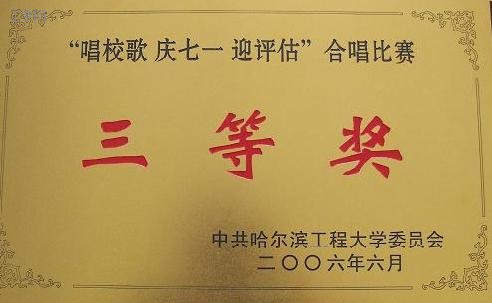 “唱校歌 庆七一 迎评估”合唱比赛
三等奖
中共哈尔滨工程大学委员会
二〇〇六年六月